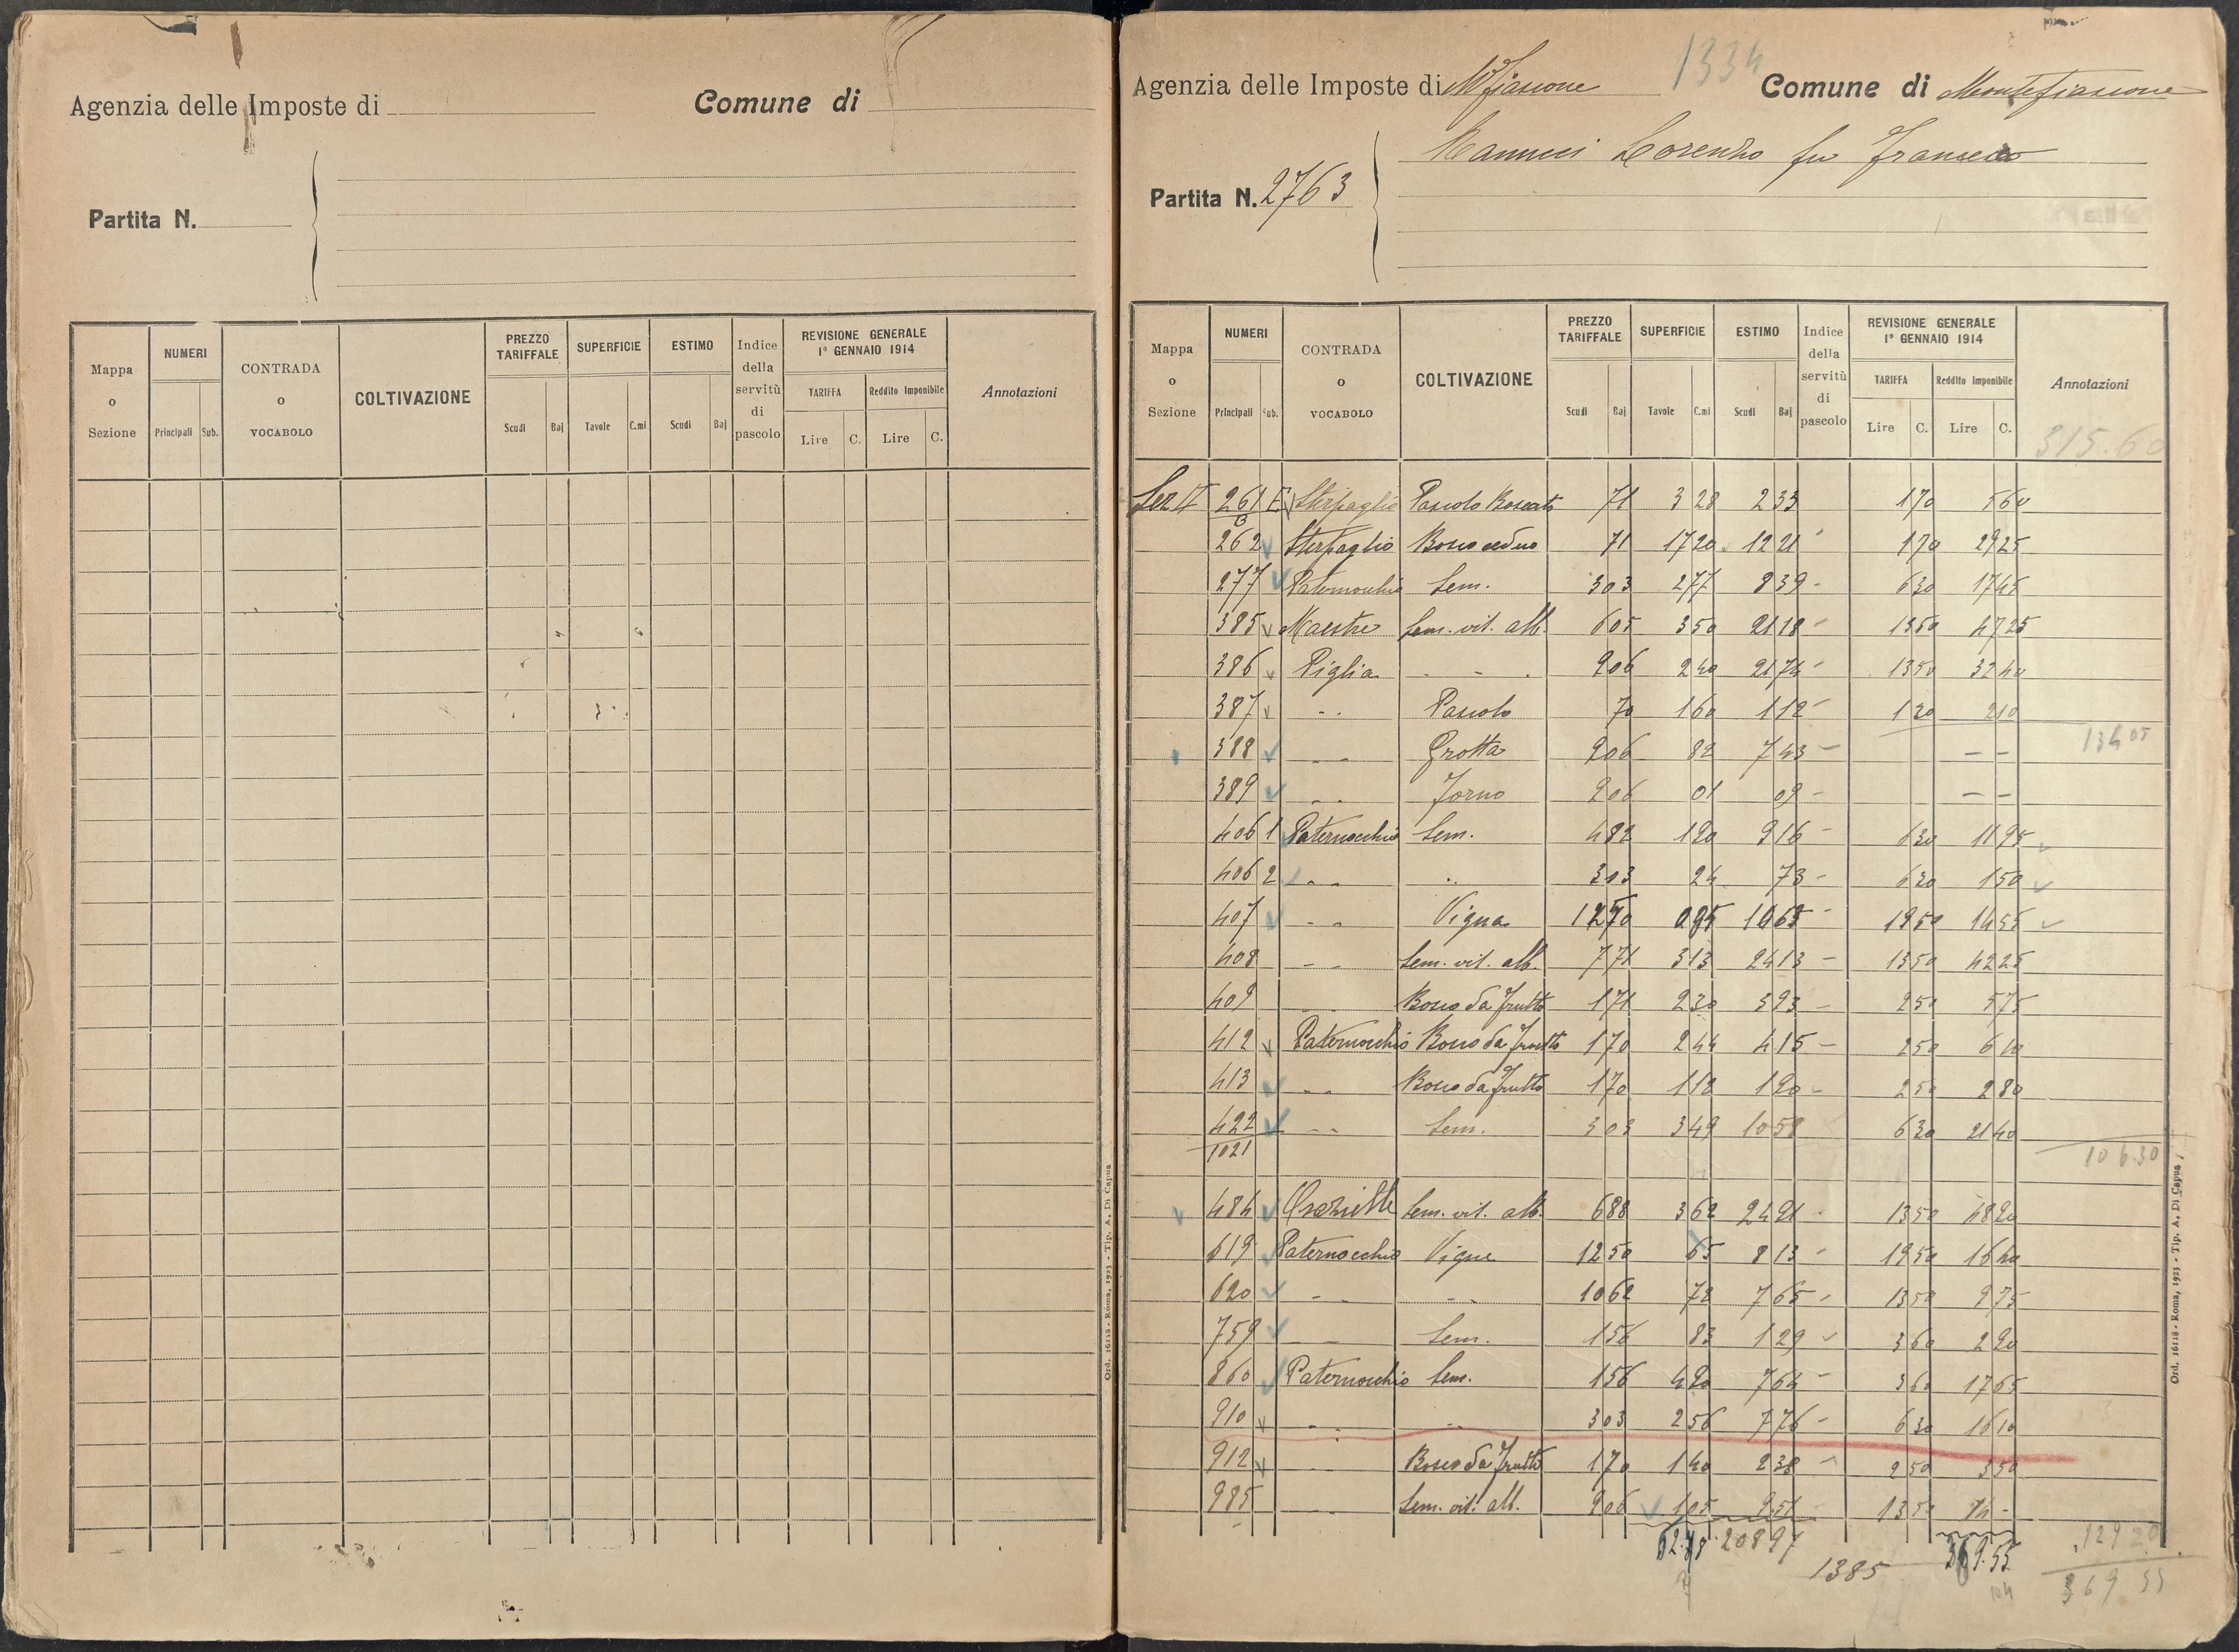 Agenzia delle Imposte di
Comune di
Partita N.
Mappa o Sezione
NUMERI
Principali Sub.
CONTRADA o VOCABOLO
COLTIVAZIONE
PREZZO TARIFFALE
Scudi Baj
SUPERFICIE
Tavole C.mi
ESTIMO
Scudi Baj
Indice della servitù di pascolo
REVISIONE GENERALE 1° GENNAIO 1914
TARIFFA
Lire C.
Reddito Imponibile
Lire C.
Annotazioni
Ord. 16118 - Roma, 1923 - Tip. A. Di Capua
1334
Agenzia delle Imposte di Mfiascone
Comune di Montefiascone
Partita N. 2763
Lorenzo fu Francesco
Mappa o Sezione
NUMERI
Principali Sub.
CONTRADA o VOCABOLO
COLTIVAZIONE
PREZZO TARIFFALE
Scudi Baj
SUPERFICIE
Tavole C.mi
ESTIMO
Scudi Baj
Indice della servitù di pascolo
REVISIONE GENERALE 1° GENNAIO 1914
TARIFFA
Lire C.
Reddito Imponibile
Lire C.
Annotazioni
315.60
261 Sterpaglio Pascolo Boscato 71 3 28 2 33 1 70 5 60
262 Sterpaglio Bosco ceduo 71 17 20 12 21 1 70 29 25
277 Paternocchio Sem. 3 03 2 77 8 39 6 30 17 45
385 Maestre Sem. vit. alb. 6 05 3 50 21 18 13 50 47 25
386 Piglia - - - 9 06 2 40 21 74 13 50 32 40
387 - - Pascolo 70 1 60 1 12 1 30 2 10
134 05
388 - - Grotta 9 06 82 7 43 - -
389 - - Forno 9 06 01 09 - -
406 1 Paternocchio Sem. 4 82 1 90 9 16 6 30 11 95
406 2 - - - - 3 03 24 73 6 30 1 50
407 - - Vigna 19 50 14 55
408 - - Sem. vit. alb. 7 71 3 13 24 13 13 50 42 25
409 Bosco da frutto 1 71 2 30 3 93 2 50 5 75
412 Paternocchio Bosco da frutto 1 70 2 44 4 15 2 50 6 10
413 - - Bosco da frutto 1 70 1 12 1 90 2 50 2 80
422/1021 - - Sem. 3 03 3 49 10 58 6 30 21 40
106.30
484 Sem. vit. alb. 6 88 3 62 24 91 13 50 48 90
619 Paternocchio Vigna 12 50 65 8 13 19 50 16 40
620 - - - - 10 62 72 7 65 13 50 9 75
759 - - Sem. 1 56 83 1 29 3 60 2 90
860 Paternocchio Sem. 1 56 4 90 7 64 3 60 17 65
910 - - - - 3 03 2 56 7 76 6 30 16 10
912 - - Bosco da frutto 1 70 1 40 2 38 2 50 3 50
985 - - Sem. vit. alb. 9 06 1 05 9 51 13 50 14 -
208 97
1385
369.55
129 20
369 55
Ord. 16118 - Roma, 1923 - Tip. A. Di Capua